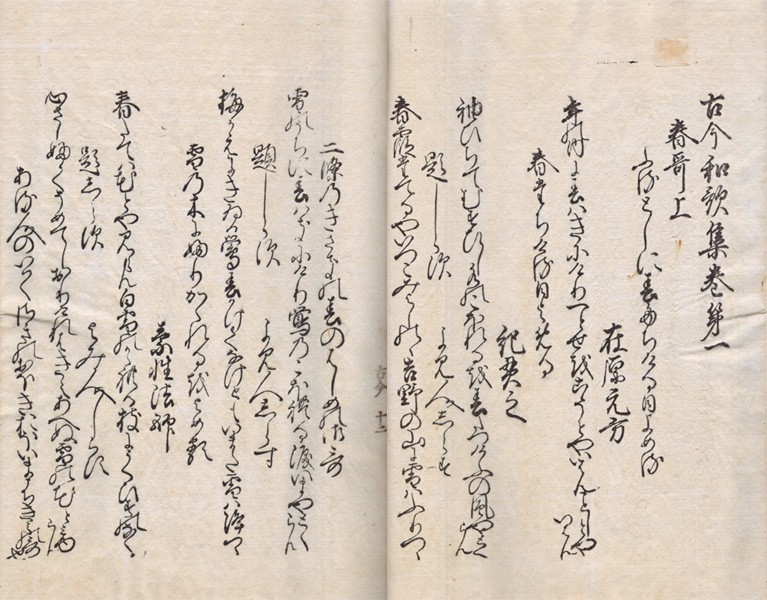 古今和歌集巻第一
春哥上
ふるとしに春たちける日よめる
在原元方
年の内に春はきにけり一とせをこそとやいはんことしとや
いはん
春たちける日よめる
紀貫之
袖ひちてむすひし水のこほれるを春たつけふの風やとく
らん
題しらす
よみ人しらす
春霞たてるやいつこみよしのの吉野の山に雪はふりつゝ
古今 十二
二條のきさきの春のはしめの御哥
雪の内に春はきにけり鶯のこほれる涙いまやとく
らん
題しらす
よみ人しらす
梅かえにきゐる鶯春かけてなけともいまた雪はふりつゝ
雪の木にふりかゝれるをよめる
素性法師
春たては花とや見らん白雪のかゝれる枝にうくひすそなく
題しらす
よみ人しらす
心さしふかくそめてしおりけれはきえあへぬ雪の花と見ゆ
らん
ある人のいはくさきのおほきおほいまうちきみの哥
也